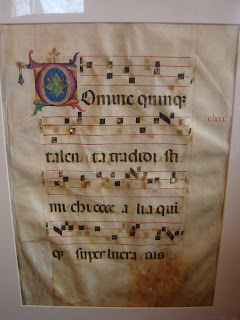 Domine quinq
talen ta tradidi sti
mi chi ecce a lia qui
q super lucra tus